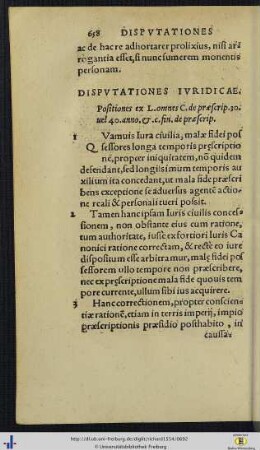 658 DISPVTATIONES
ac de hac re adhortarer prolixius, nisi arrogantia esset, si nunc sumerem monentis
personam.
DISPVTATIONES IVRIDICAE.
Positiones ex L. omnes C. de præscrip. 30.
uel 40. anno, & c. fin. de præscrip.
1 QVamuis Iura ciuilia, malæ fidei possessores longa temporis pręscriptione, propter iniquitatem, nō quidem
defendant, sed longissimum temporis auxilium ita concedant, ut mala fide præscribens exceptione se aduersus agentē actione reali & personali tueri possit.
2 Tamen hanc ipsam Iuris ciuilis concessionem, non obstante eius cum ratione,
tum authoritate, iusse ex fortiori Iuris Canonici ratione correctam, & rectè eo iure
dispositum esse arbitramur, malę fidei possessorem ullo tempore non præscribere,
nec ex pręscriptione mala fide quouis tempore currente, ullum sibi ius acquirere.
3 Hanc correctionem, propter conscientiæ rationē, etiam in terris imperij, impio
præscriptionis præsidio posthabito, in
caussis
http://dl.ub.uni-freiburg.de/diglit/
© Universitätsbibliothek Freiburg